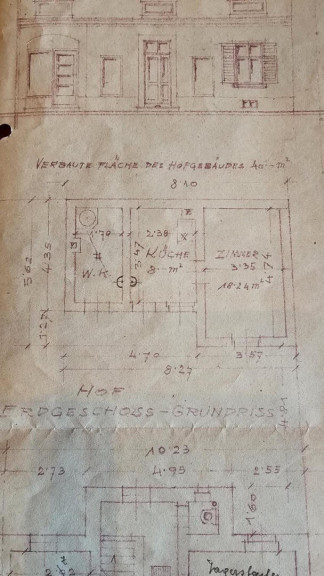 VERBAUTE FLÄCHE DES HOFGEBÄUDES 40.- m²
8.10
1.70 2.38
KÜCHE ZIMMER
3.47
W.K. 8.- m² 3.35
18.24 m²
5.62 4.35
1.27
4.70 3.57
8.27
HOF
ERDGESCHOSS-GRUNDRISS
10.23
2.73 4.95 2.55
1.60